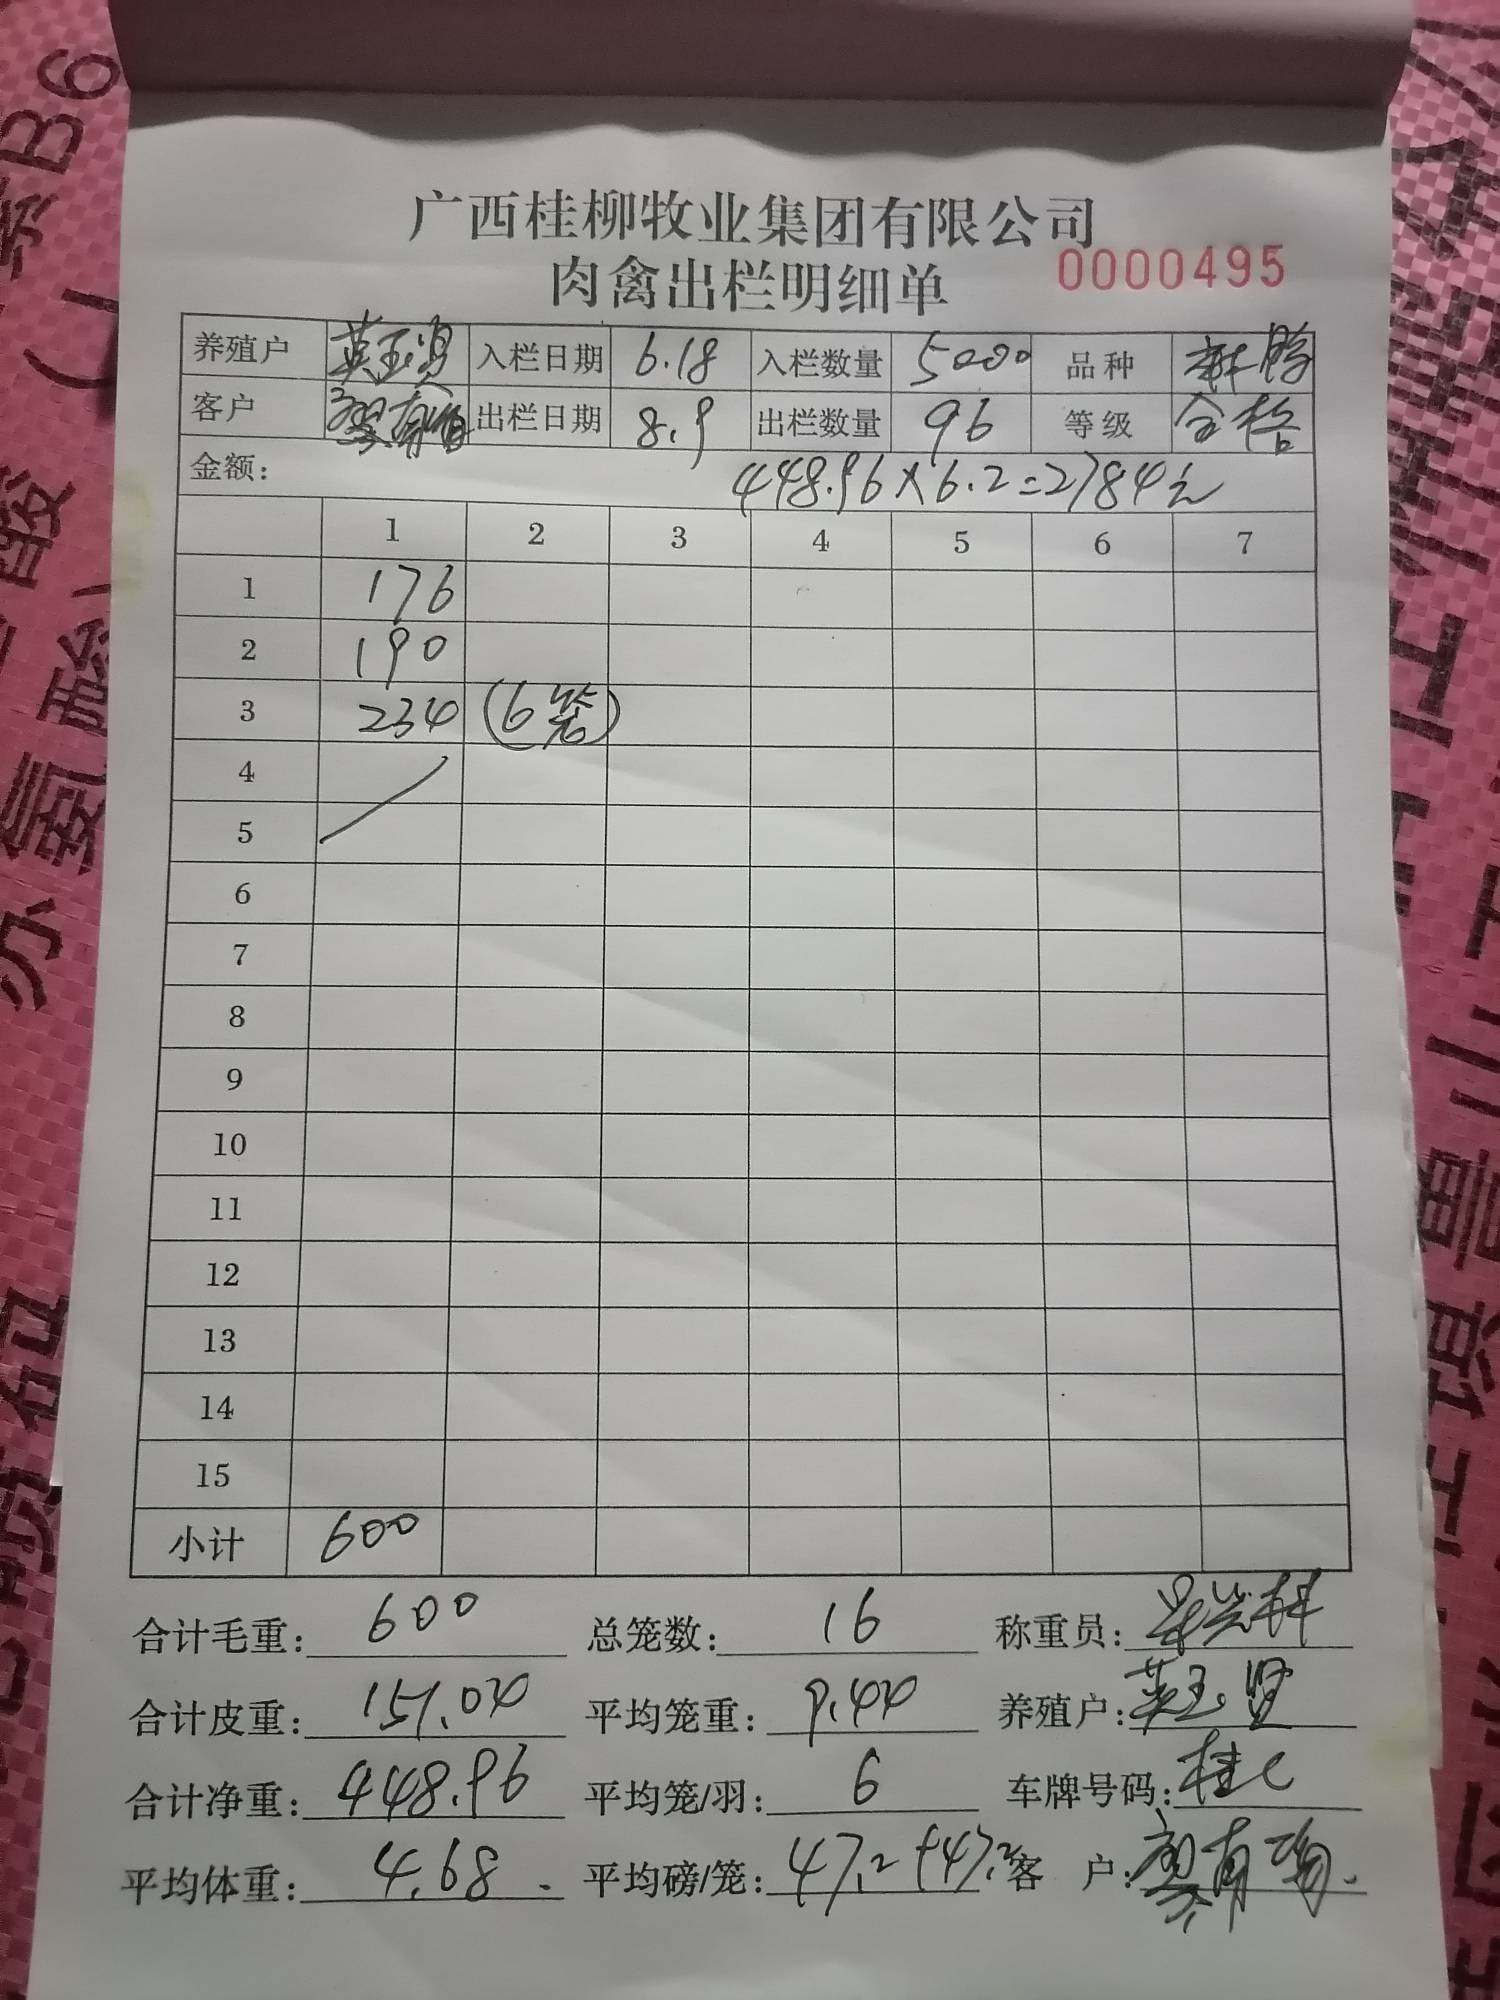 广西桂柳牧业集团有限公司
肉禽出栏明细单 0000495
养殖户 英玉贤 入栏日期 6.18 入栏数量 5000 品种
客户 廖有 出栏日期 8.9 出栏数量 96 等级 合格
金额: 448.96×6.2=2784元
1 2 3 4 5 6 7
1 176
2 190
3 234 (6笼)
4
5
6
7
8
9
10
11
12
13
14
15
小计 600
合计毛重: 600 总笼数: 16 称重员:
合计皮重: 151.04 平均笼重: 9.44 养殖户: 英玉贤
合计净重: 448.96 平均笼/羽: 6 车牌号码: 桂C
平均体重: 4.68 平均磅/笼: 47.2+47.2 客户: 廖有